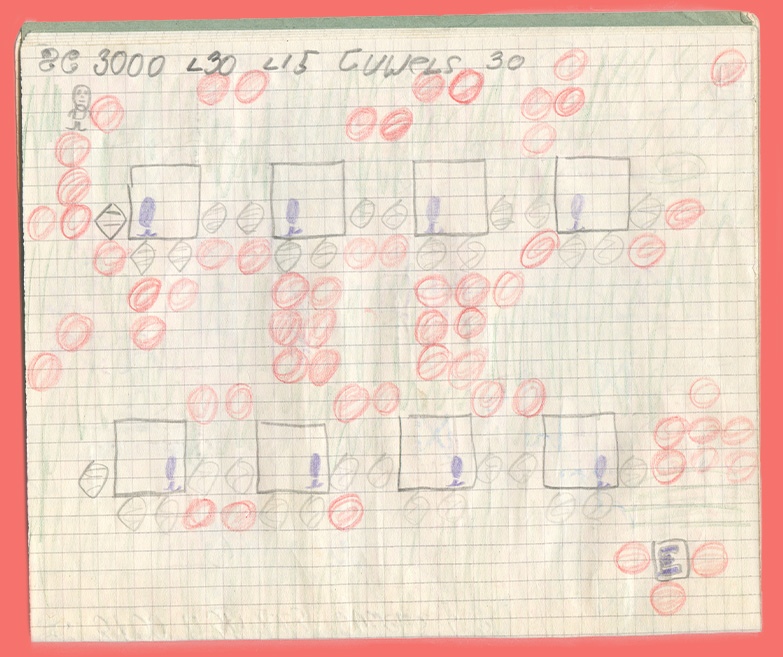 SC 3000 L30 L15 Cuwels 30
E